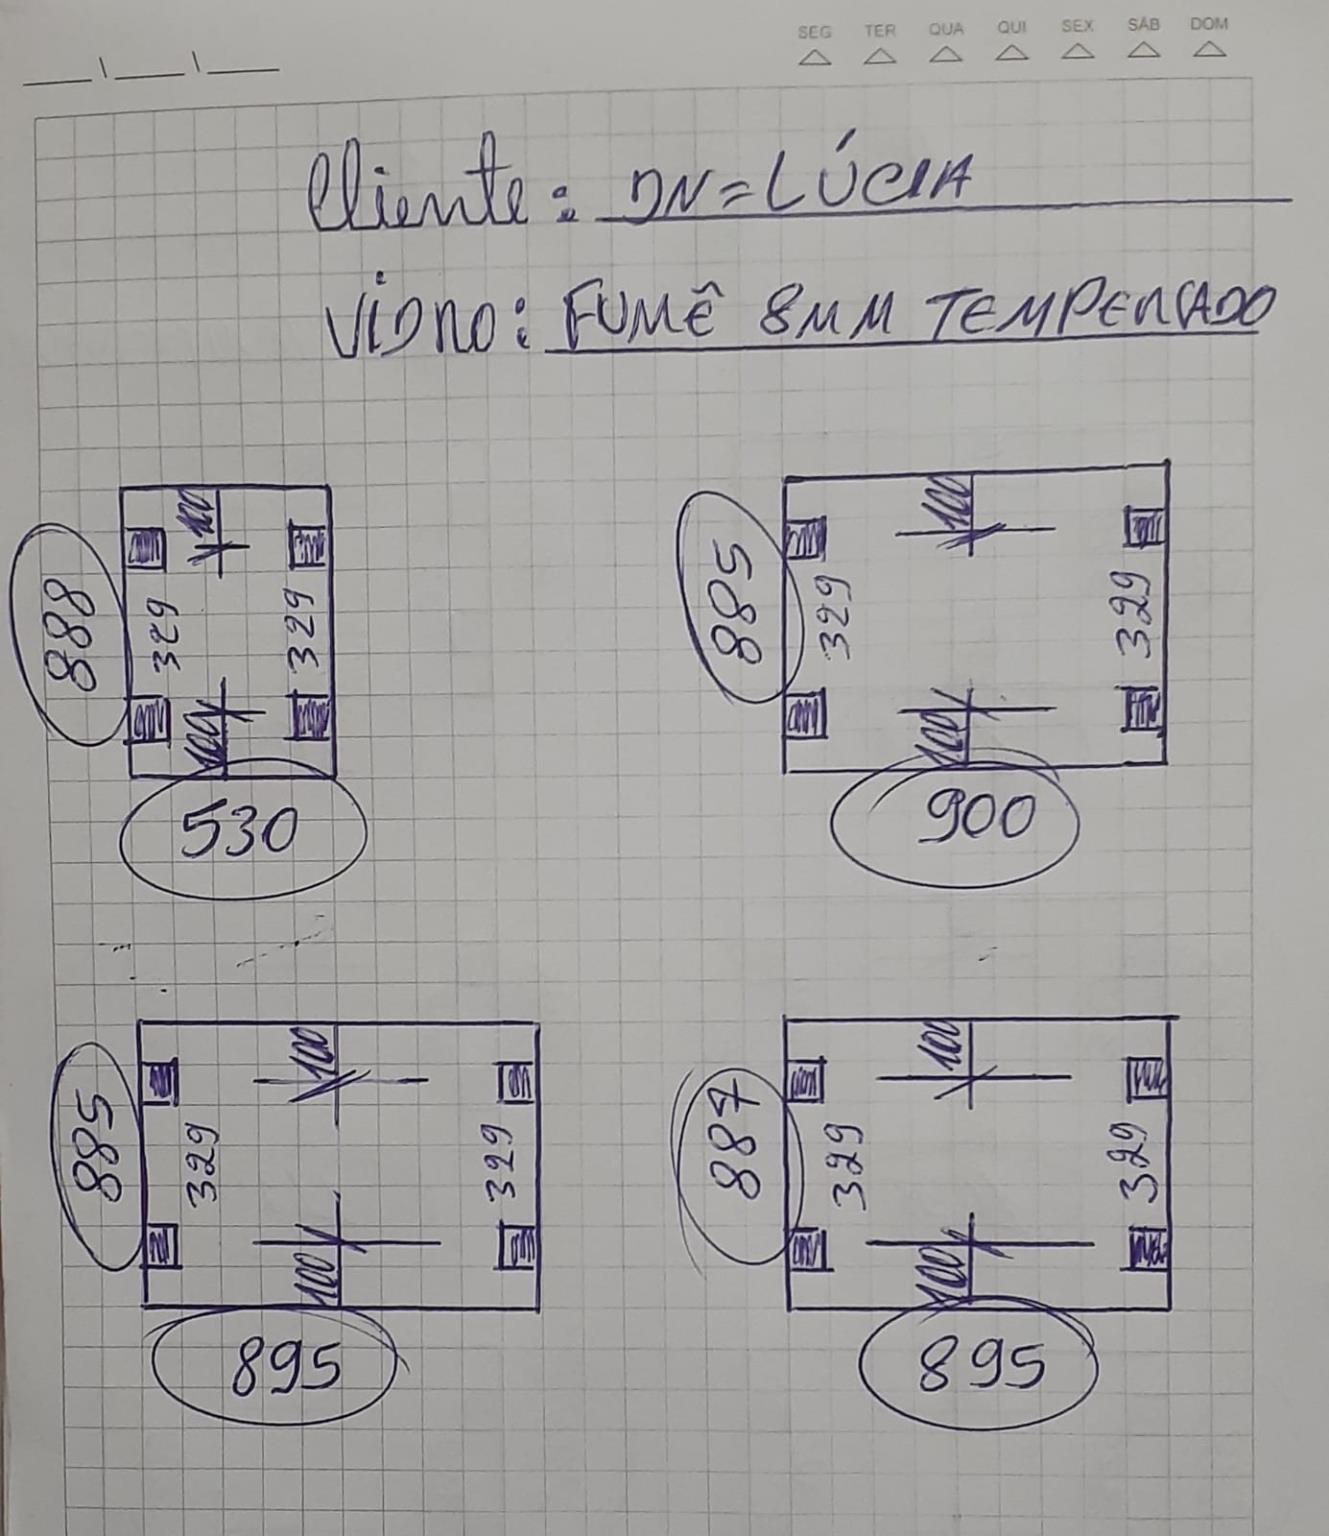 SEG TER QUA QUI SEX SÁB DOM
Cliente: DN=LÚCIA
VIDRO: FUMÊ 8MM TEMPERADO
100
888
329
329
100
530
100
885
329
329
100
900
100
885
329
329
100
895
100
887
329
329
100
895